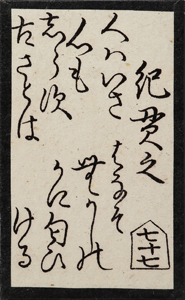 紀貫之
人ハいさ
心も
しらす
古さとは
はなそ
むかしの
かに匂ひ
ける
七十七